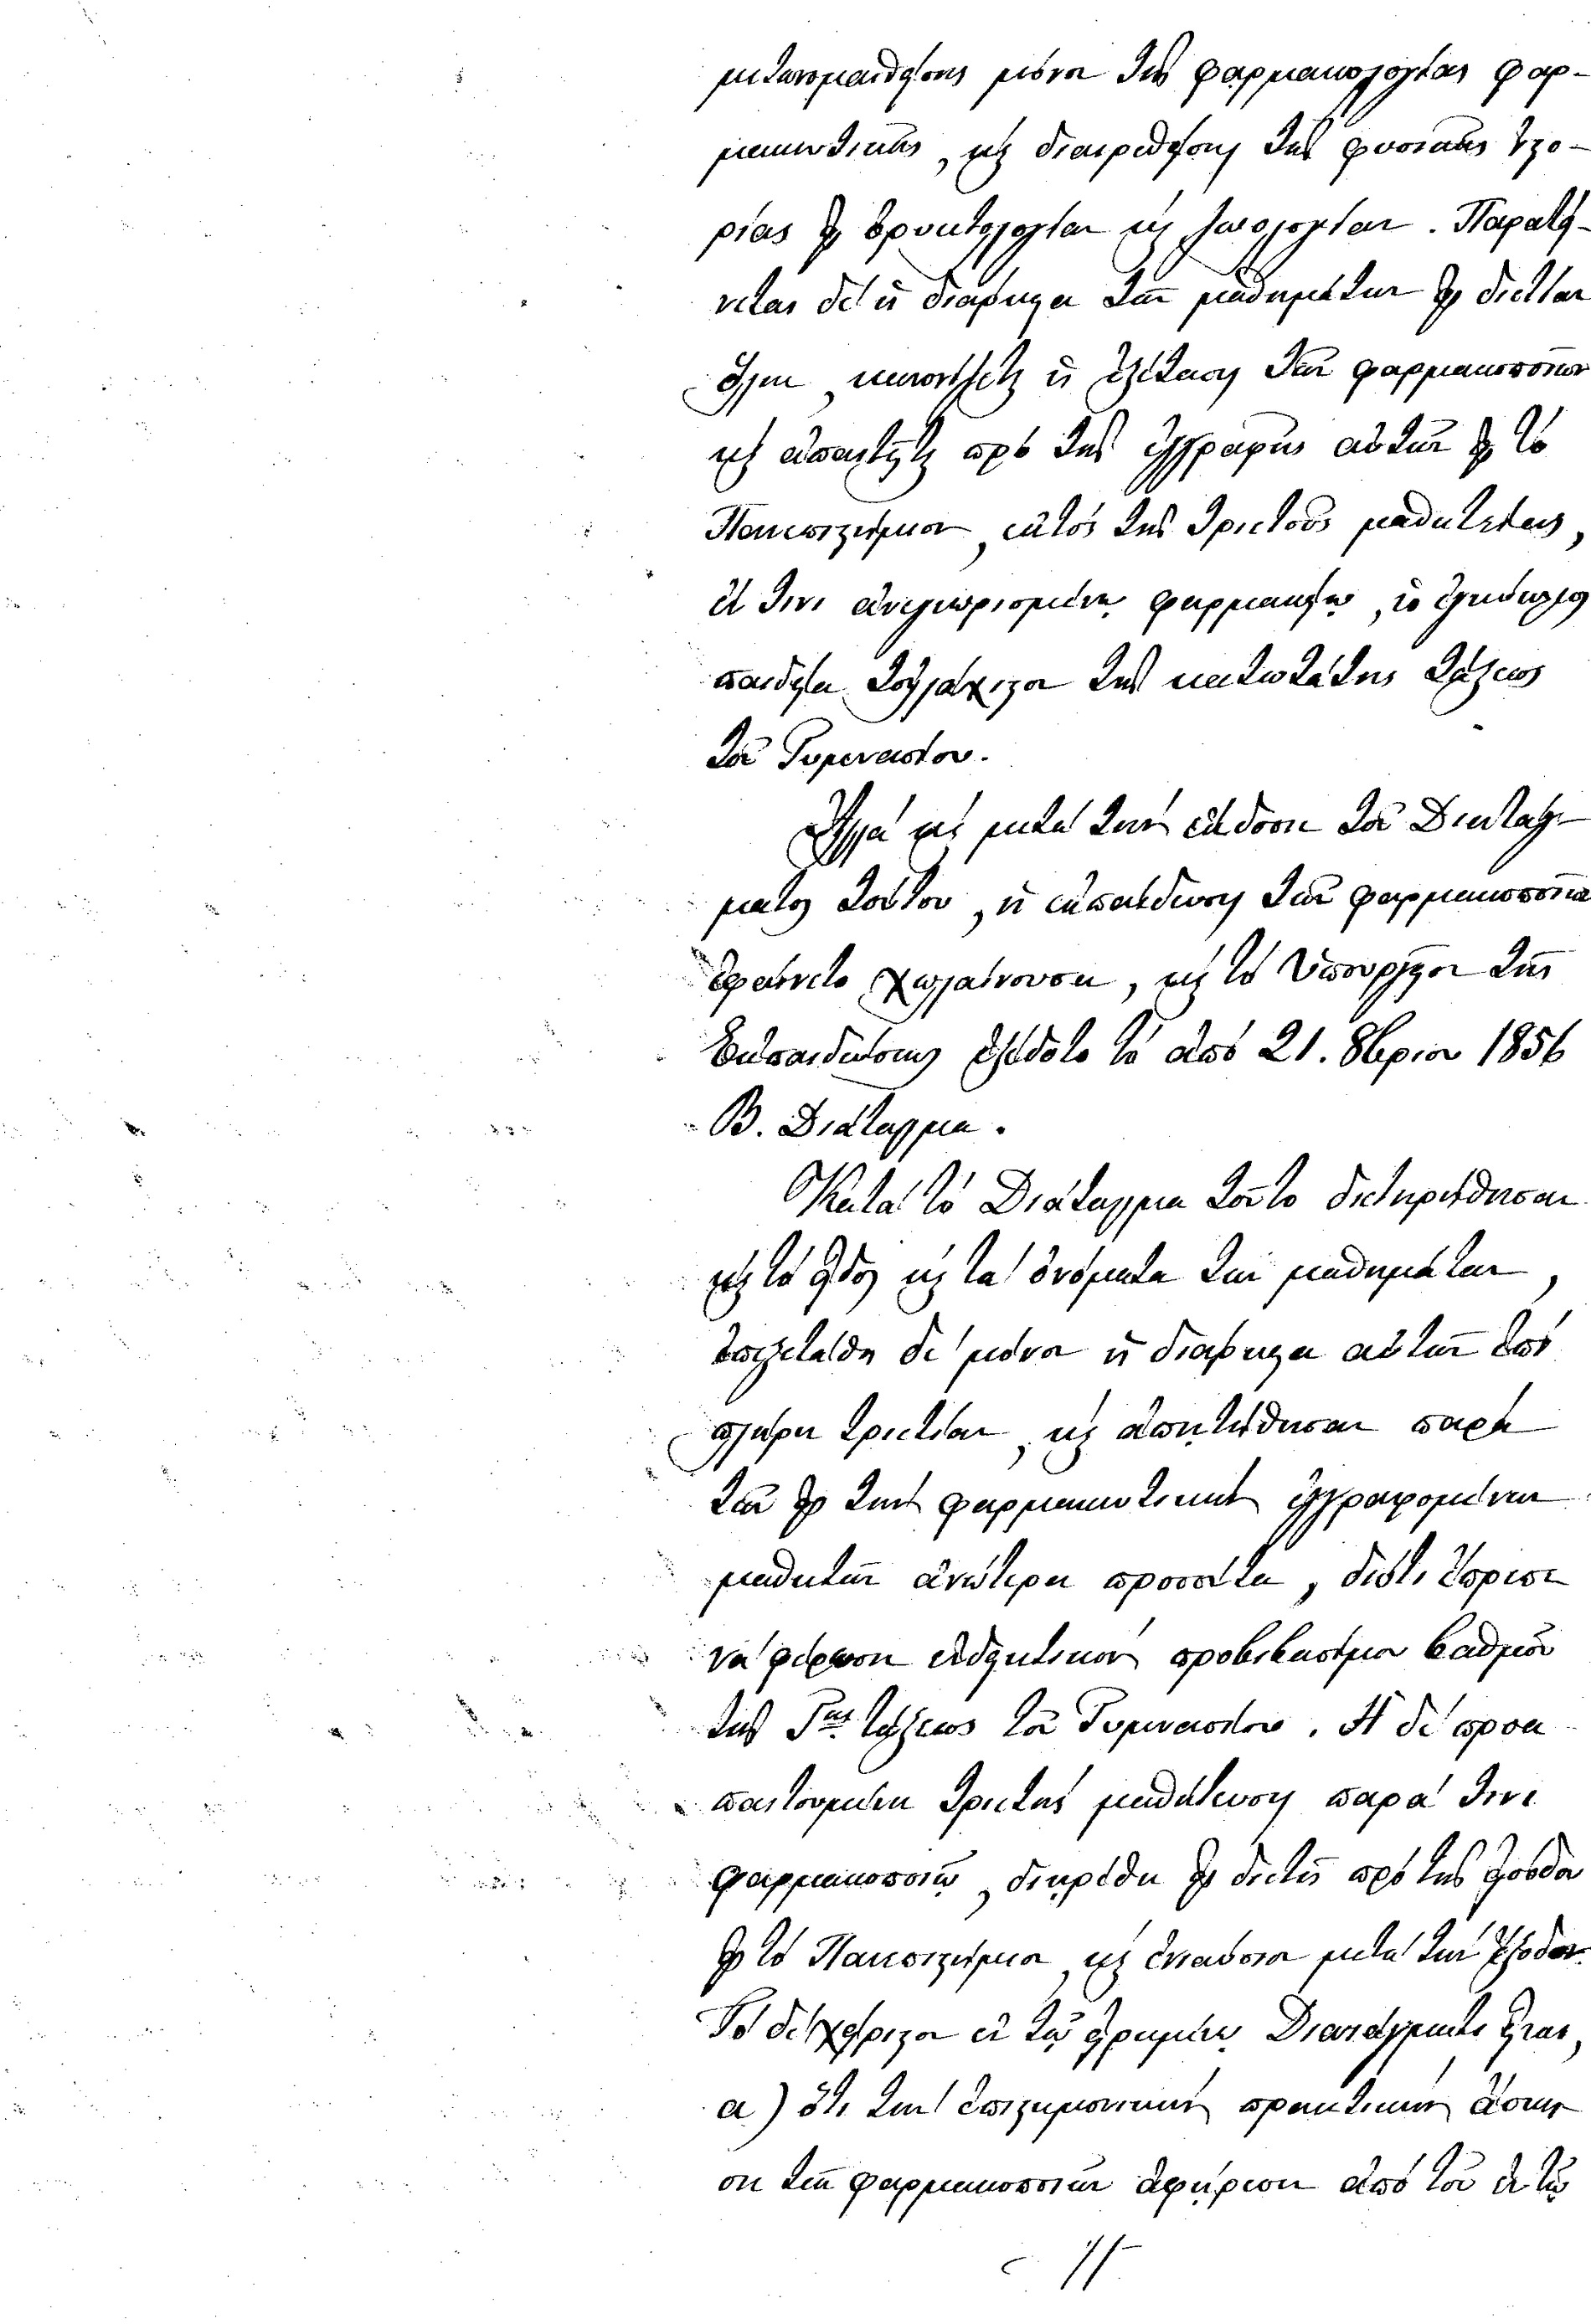 μετονομασθείσης μόνον τῆς φαρμακολογίας φαρ-
μακευτικῆς, καὶ διαιρεθείσης τῆς φυσικῆς ἱστο-
ρίας εἰς ὀρυκτολογίαν καὶ ζωολογίαν. Παρατεί-
νεται δὲ ἡ διάρκεια τῶν μαθημάτων εἰς διετίαν
ὅλην, κανονίζεται ἡ ἐξέτασις τῶν φαρμακοποιῶν
καὶ ἀπαιτεῖται πρὸ τῆς ἐγγραφῆς αὐτῶν εἰς τὸ
Πανεπιστήμιον, ἐκτὸς τῆς τριετοῦς μαθητείας,
ἔν τινι ἀνεγνωρισμένῳ φαρμακείῳ, ἡ ἐγκύκλιος
παιδεία τοὐλάχιστον τῆς κατωτάτης τάξεως
τοῦ Γυμνασίου.
Ἀλλὰ καὶ μετὰ τὴν ἔκδοσιν τοῦ Διατάγ-
ματος τούτου, ἡ ἐκπαίδευσις τῶν φαρμακοποιῶν
ἐφαίνετο χωλαίνουσα, καὶ τὸ Ὑπουργεῖον τῆς
Ἐκπαιδεύσεως ἐξέδοτο τὸ ἀπὸ 21. 8βρίου 1856
Β. Διάταγμα.
Κατὰ τὸ Διάταγμα τοῦτο διετηρήθησαν
καὶ τὸ εἶδος καὶ τὰ ὀνόματα τῶν μαθημάτων,
ἐπεξετάθη δὲ μόνον ἡ διάρκεια αὐτῶν ἐπὶ
πλήρη τριετίαν, καὶ ἀπῃτήθησαν παρὰ
τῶν εἰς τὴν φαρμακευτικὴν ἐγγραφομένων
μαθητῶν ἀνώτερα προσόντα, διότι ὥρισε
νὰ φέρωσιν ἐνδεικτικὸν προβιβασίμου βαθμοῦ
τῆς Γης τάξεως τοῦ Γυμνασίου. Ἡ δὲ προα-
παιτουμένη τριετὴς μαθήτευσις παρά τινι
φαρμακοποιῷ, διῃρέθη εἰς διετῆ πρὸ τῆς εἰσόδου
εἰς τὸ Πανεπιστήμιον, καὶ ἐνιαύσιον μετὰ τὴν ἔξοδον.
Τὸ δὲ χείριστον ἐν τῷ εἰρημένῳ Διατάγματι εἶναι,
α) ὅτι τὴν ἐπιστημονικὴν πρακτικὴν ἄσκη-
σιν τῶν φαρμακοποιῶν ἀφῄρεσεν ἀπὸ τοῦ ἐν τῷ